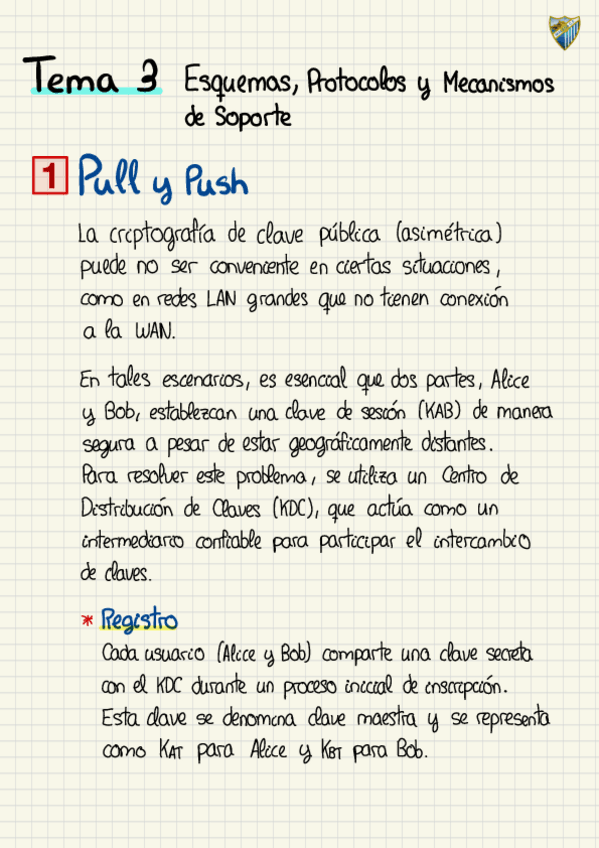 Tema 3 Esquemas, Protocolos y Mecanismos
de Soporte
1 Pull y Push
La criptografía de clave pública (asimétrica)
puede no ser conveniente en ciertas situaciones,
como en redes LAN grandes que no tienen conexión
a la WAN.
En tales escenarios, es esencial que dos partes, Alice
y Bob, establezcan una clave de sesión (KAB) de manera
segura a pesar de estar geográficamente distantes.
Para resolver este problema, se utiliza un Centro de
Distribución de Claves (KDC), que actúa como un
intermediario confiable para participar el intercambio
de claves.
* Registro
Cada usuario (Alice y Bob) comparte una clave secreta
con el KDC durante un proceso inicial de inscripción.
Esta clave se denomina clave maestra y se representa
como KAT para Alice y KBT para Bob.